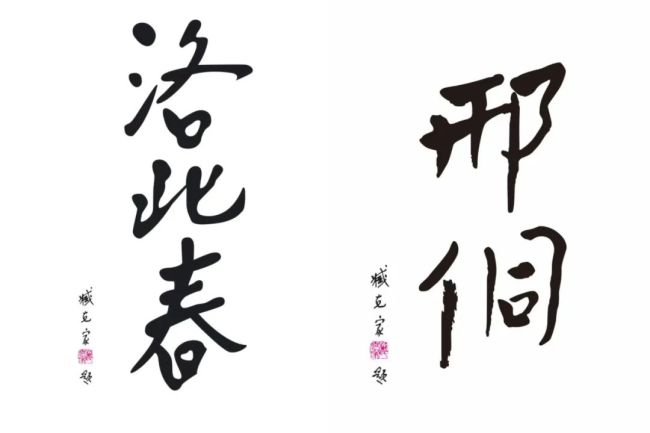 洛北春
臧克家题
邢侗
臧克家题